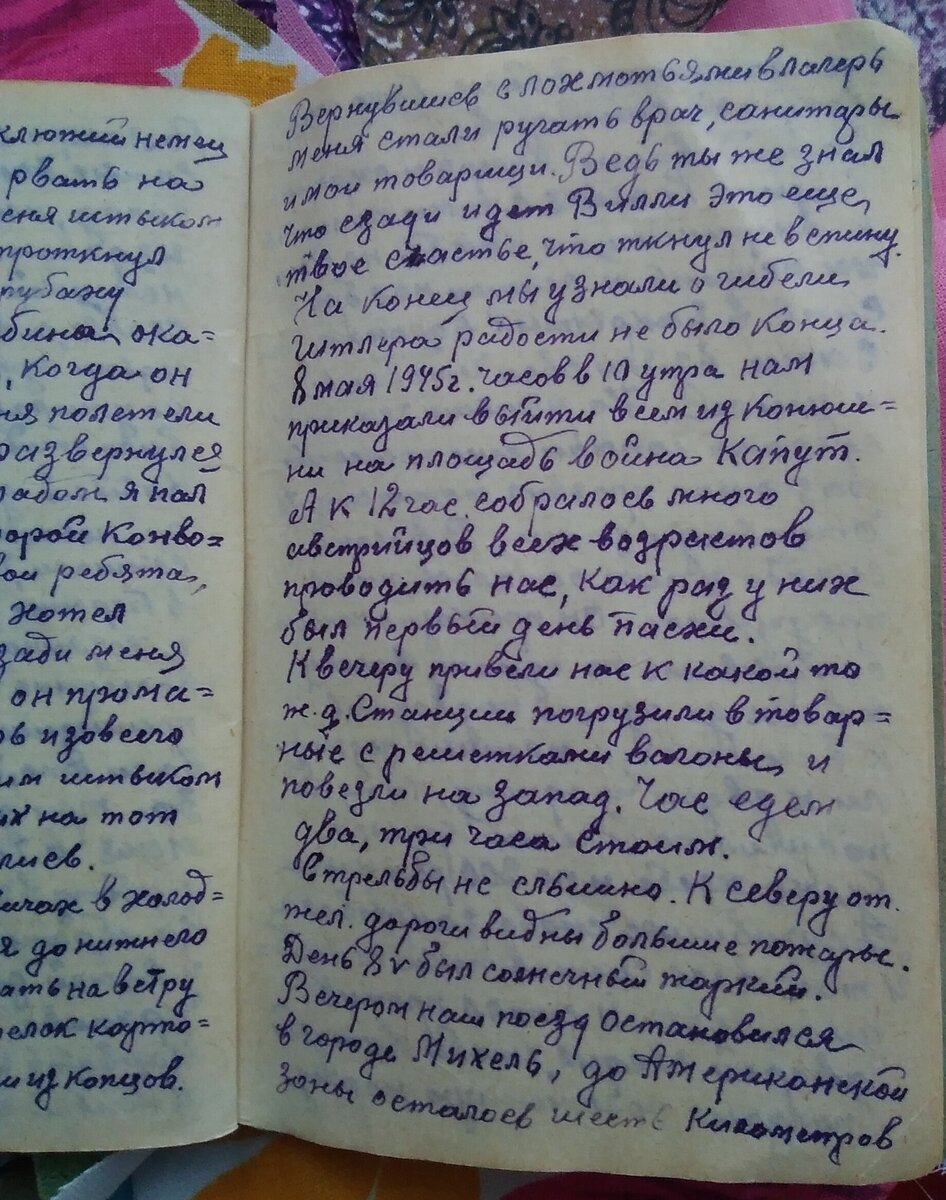 клютий немец
рвать на
еня штыком
проткнул
рубаху
бина ока=
, когда он
ня полетели
развернулся
ладом я пал
орой конво=
вои ребята,
хотел
зади меня
он прома=
ов изовсего
им штыком
их на тот
лись.
ичах в холод=
я до нижнего
ать на ветру
елок карто=
и из копцов.
Вернувшись с лохмотьями в лагерь
меня стали ругать врач, санитары
и мои товарищи. Ведь ты же знал
что сзади идет Вилли это еще
твое счастье, что ткнул не в спину.
На конец мы узнали о гибели
Гитлера радости не было конца.
8 мая 1945г. часов в 10 утра нам
приказали выйти всем из конюш=
ни на площадь война капут.
А к 12 час. собралось много
австрийцов всех водрастов
проводить нас, как раз у них
был первый день пасхи.
К вечеру привели нас к какой то
ж.д. Станции погрузили в товар=
ные с решетками вагоны и
повезли на запад. Час едем
два, три часа стоим.
Стрельбы не слышно. К северу от
жел. дороги видны большие пожары.
День 8v был солнечный жаркий.
Вечером наш поезд остановился
в городе Михель, до Американской
зоны осталось шесть километров